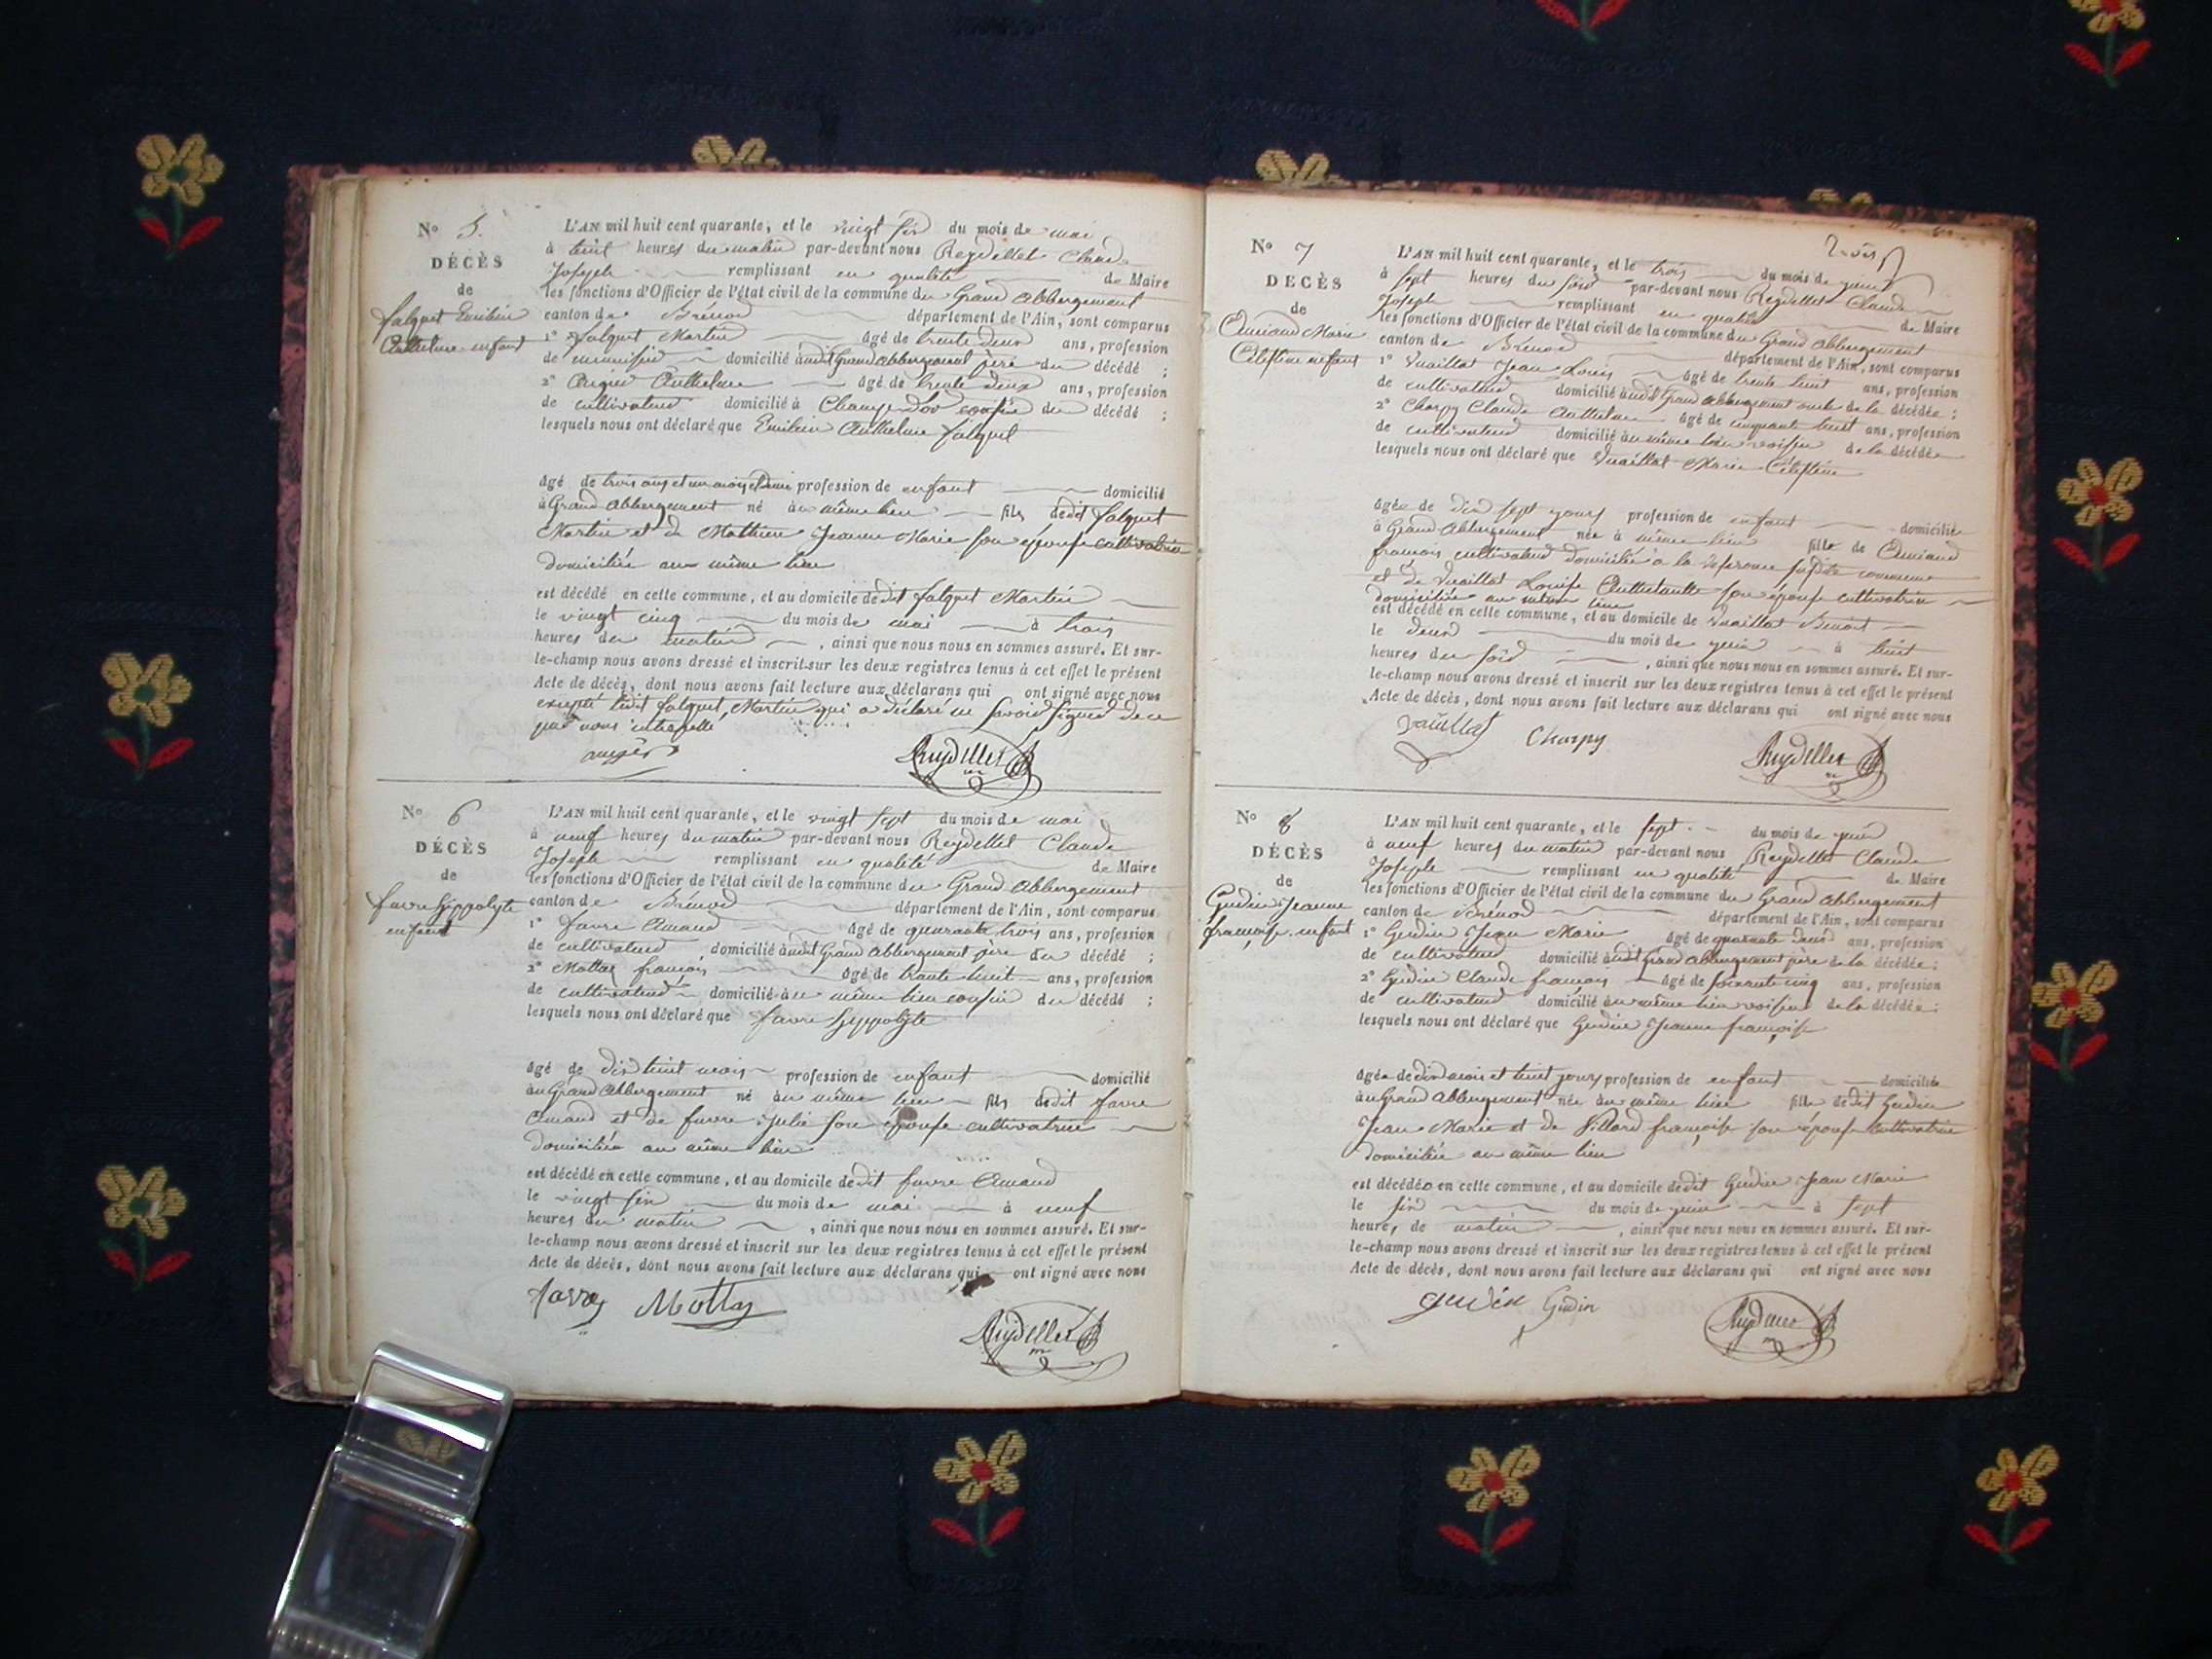 No 5.
DÉCÈS
de
falquet Emilien
Anthelme enfant
L'AN mil huit cent quarante, et le vingt six du mois de mai
à huit heures du matin par-devant nous Reydellet Claude
Joseph remplissant en qualité de Maire
les fonctions d'Officier de l'état civil de la commune du Grand Abbergement
canton de Brénod département de l'Ain, sont comparus
1° falquet Martin âgé de trente deux ans, profession
de menuisier domicilié audit Grand Abbergement père du décédé ;
2° Augier Anthelme âgé de trente deux ans, profession
de cultivateur domicilié à Champdor cousin du décédé ;
lesquels nous ont déclaré que Emilien Anthelme falquet
âgé de trois ans et un mois et demi profession de enfant domicilié
à Grand Abbergement né au même lieu fils dedit falquet
Martin et de Mathieu Jeanne Marie son épouse cultivatrice
domiciliée au même lieu
est décédé en cette commune, et au domicile dedit falquet Martin
le vingt cinq du mois de mai à trois
heures du matin, ainsi que nous nous en sommes assuré. Et sur-
le-champ nous avons dressé et inscrit sur les deux registres tenus à cet effet le présent
Acte de décès, dont nous avons fait lecture aux déclarans qui ont signé avec nous
excepté ledit falquet Martin qui a déclaré ne savoir signer de ce
par nous interpellé
augier Reydellet
No 6
DÉCÈS
de
favre hippolyte
enfant
L'AN mil huit cent quarante, et le vingt sept du mois de mai
à neuf heures du matin par-devant nous Reydellet Claude
Joseph remplissant en qualité de Maire
les fonctions d'Officier de l'état civil de la commune du Grand Abbergement
canton de Brénod département de l'Ain, sont comparus
1° favre Amand âgé de quarante trois ans, profession
de cultivateur, domicilié audit Grand Abbergement père du décédé ;
2° Mottaz françois âgé de trente huit ans, profession
de cultivateur domicilié au même lieu cousin du décédé ;
lesquels nous ont déclaré que favre hippolyte
âgé de dix huit mois profession de enfant domicilié
au Grand Abbergement né au même lieu fils dedit favre
Amand et de favre Julie son épouse cultivatrice
domiciliée au même lieu
est décédé en cette commune, et au domicile dedit favre Amand
le vingt six du mois de mai à neuf
heures du matin, ainsi que nous nous en sommes assuré. Et sur-
le-champ nous avons dressé et inscrit sur les deux registres tenus à cet effet le présent
Acte de décès, dont nous avons fait lecture aux déclarans qui ont signé avec nous
favre Mottaz
Reydellet
No 7
DECÈS
de
Amiand Marie
Célestine enfant
L'AN mil huit cent quarante, et le trois du mois de juin
à sept heures du soir par-devant nous Reydellet Claude
Joseph remplissant en qualité de Maire
les fonctions d'Officier de l'état civil de la commune du Grand Abbergement
canton de Brénod département de l'Ain, sont comparus
1° Vuaillat Jean Louis âgé de trente huit ans, profession
de cultivateur domicilié audit Grand Abbergement oncle de la décédée ;
2° Charpy Claude Anthelme âgé de cinquante huit ans, profession
de cultivateur domicilié au même lieu voisin de la décédée
lesquels nous ont déclaré que Vuaillat Marie Célestine
âgée de dix sept jours profession de enfant domicilié
à Grand Abbergement née à même lieu fille de Amiand
françois cultivateur domicilié à la susdite commune
et de Vuaillat Louise son épouse cultivatrice
domiciliée au même lieu
est décédé en cette commune, et au domicile de Vuaillat Benoit
le deux du mois de juin à huit
heures du soir, ainsi que nous nous en sommes assuré. Et sur-
le-champ nous avons dressé et inscrit sur les deux registres tenus à cet effet le présent
Acte de décès, dont nous avons fait lecture aux déclarans qui ont signé avec nous
Vuaillat Charpy Reydellet
No 8
DÉCÈS
de
Gudin Jeanne
françoise enfant
L'AN mil huit cent quarante, et le sept du mois de juin
à neuf heures du matin par-devant nous Reydellet Claude
Joseph remplissant en qualité de Maire
les fonctions d'Officier de l'état civil de la commune du Grand Abbergement
canton de Brénod département de l'Ain, sont comparus
1° Gudin Jean Marie âgé de quarante deux ans, profession
de cultivateur domicilié audit Grand Abbergement père de la décédée ;
2° Gudin Claude françois âgé de soixante cinq ans, profession
de cultivateur domicilié au même lieu voisin de la décédée ;
lesquels nous ont déclaré que Gudin Jeanne françoise
âgée de dix mois et huit jours profession de enfant domicilié
au Grand Abbergement née au même lieu fille dedit Gudin
Jean Marie et de Billard françoise son épouse cultivatrice
domiciliée au même lieu
est décédée en cette commune, et au domicile dedit Gudin Jean Marie
le six du mois de juin à sept
heures de matin, ainsi que nous nous en sommes assuré. Et sur-
le-champ nous avons dressé et inscrit sur les deux registres tenus à cet effet le présent
Acte de décès, dont nous avons fait lecture aux déclarans qui ont signé avec nous
gudin Gudin Reydellet